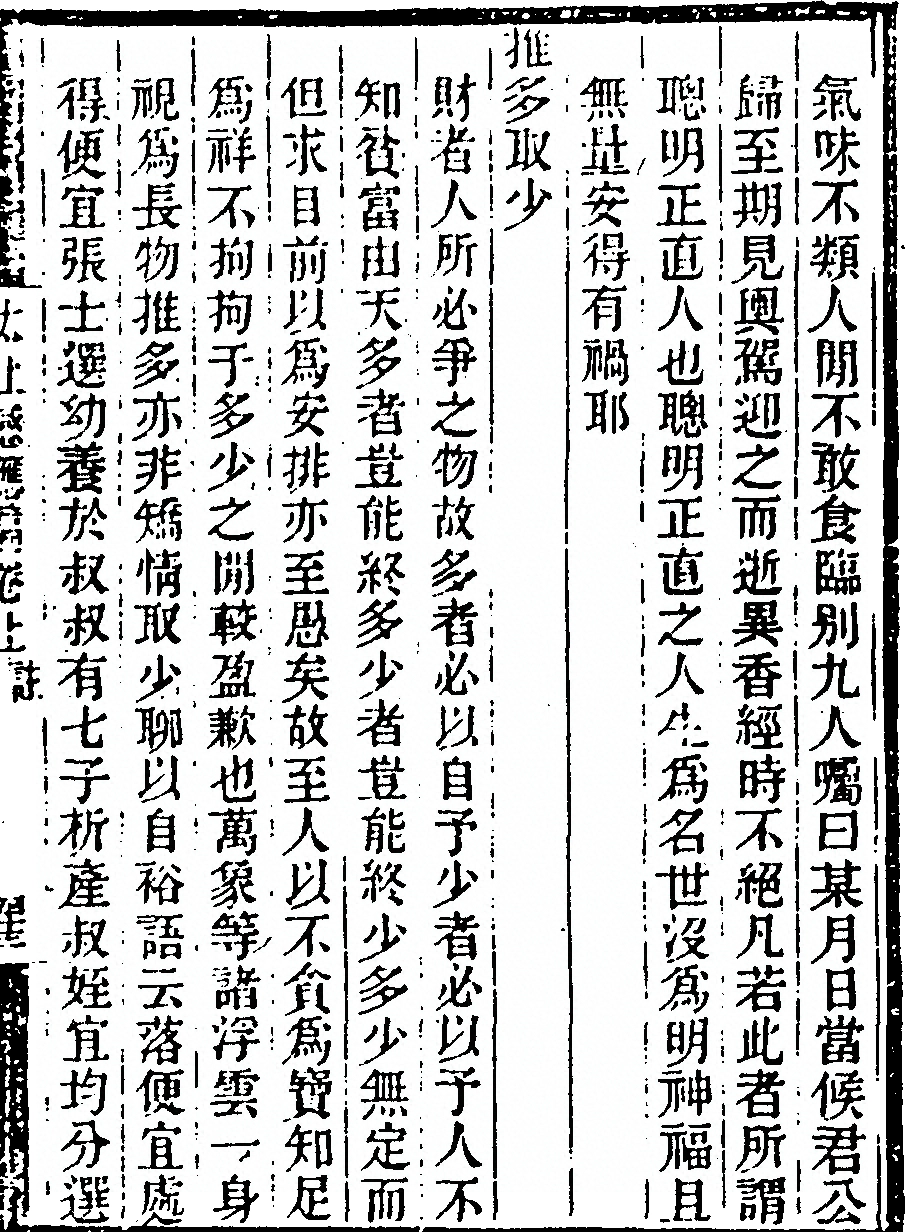 氣味不類人閒不敢食臨别九人囑曰某月日當候君公
歸至期見輿駕迎之而逝異香經時不絕凡若此者所謂
聰明正直人也聰明正直之人生爲名世沒爲明神福且
無量安得有禍耶
推多取少
財者人所必爭之物故多者必以自予少者必以予人不
知貧富由天多者豈能終多少者豈能終少多少無定而
但求目前以爲安排亦至愚矣故至人以不貪爲寶知足
爲祥不拘拘于多少之閒較盈歉也萬象等諸浮雲一身
視爲長物推多亦非矯情取少聊以自裕語云落便宜處
得便宜張士選幼養於叔叔有七子析產叔姪宜均分選
太上感應篇卷上 註